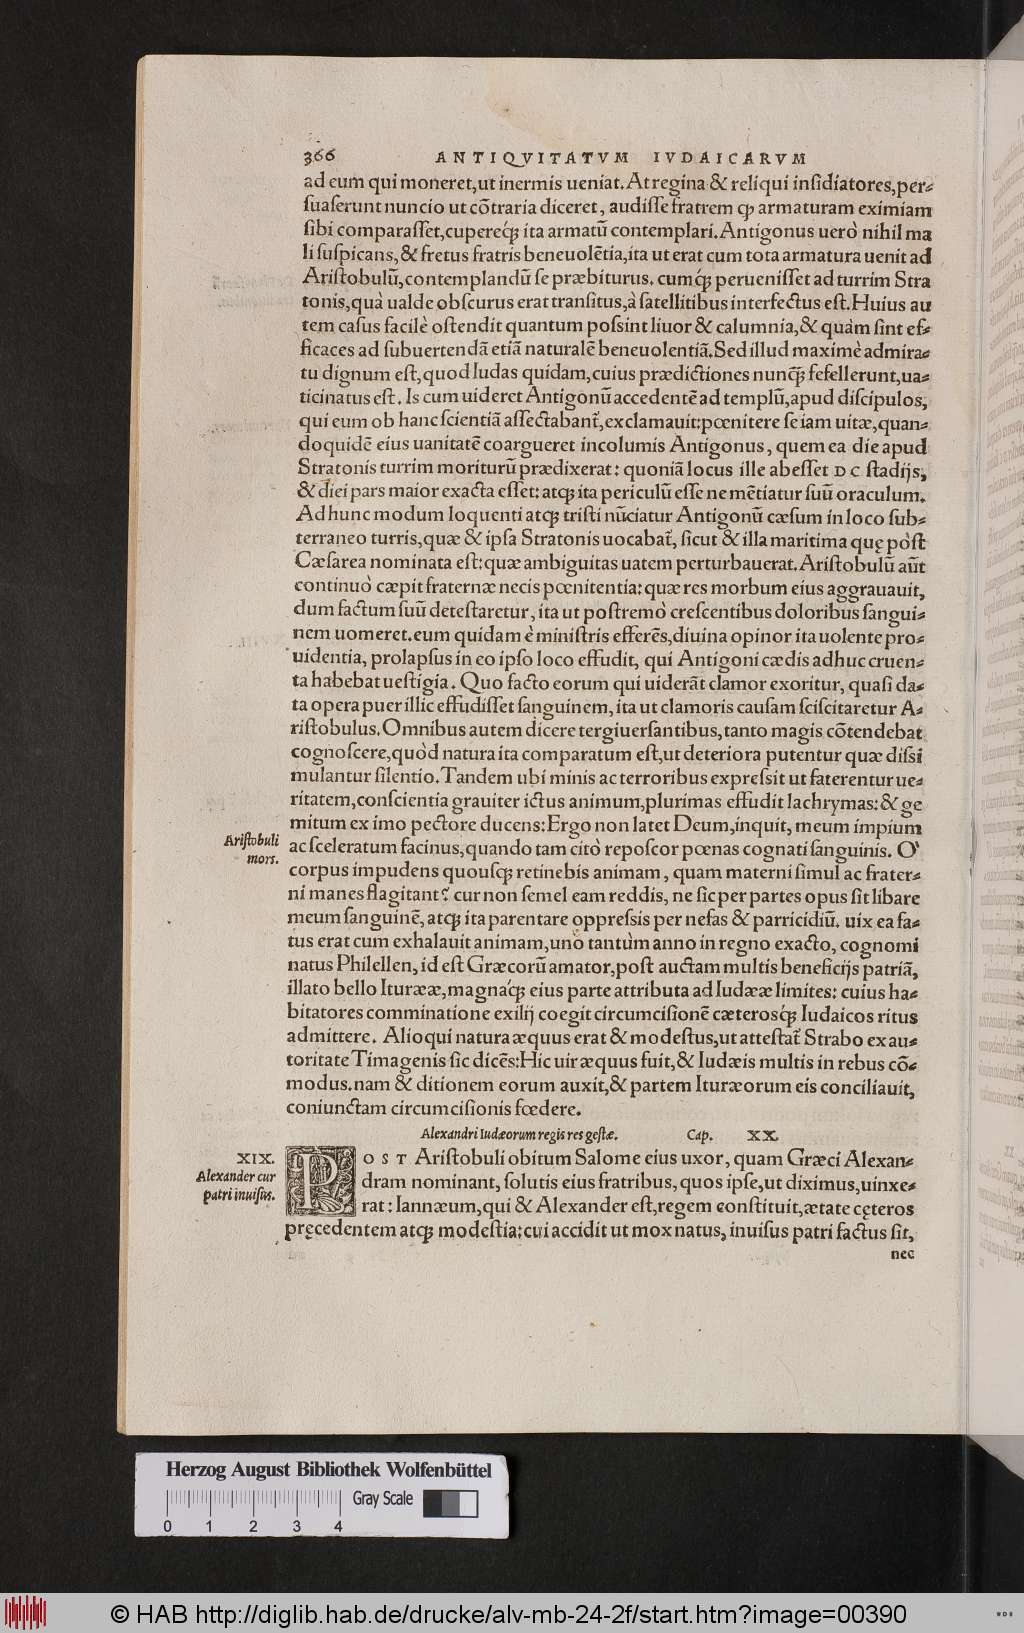 366 ANTIQVITATVM IVDAICARVM
ad eum qui moneret,ut inermis ueniat. At regina & reliqui inſidiatores,per-
ſuaſerunt nuncio ut cõtraria diceret, audiſſe fratrem ꝙ armaturam eximiam
ſibi comparaſſet,cupereq́ꝫ ita armatũ contemplari. Antigonus uerò nihil ma
li ſuſpicans,& fretus fratris beneuolẽtia,ita ut erat cum tota armatura uenit ad
Ariſtobulũ,contemplandũ ſe præbiturus. cumq́ꝫ perueniſſet ad turrim Stra
tonis,quà ualde obſcurus erat tranſitus,à ſatellitibus interfectus eſt.Huius au
tem caſus facilè oſtendit quantum poſsint liuor & calumnia,& quàm ſint ef-
ficaces ad ſubuertendã etiã naturalẽ beneuolentiã.Sed illud maximè admira-
tu dignum eſt,quod Iudas quidam,cuius prædictiones nunq̃ꝫ fefellerunt,ua-
ticinatus eſt. Is cum uideret Antigonũ accedentẽ ad templũ,apud diſcipulos,
qui eum ob hanc ſcientiã aſſectabant̃,exclamauit:pœnitere ſe iam uitæ,quan-
doquidẽ eius uanitatẽ coargueret incolumis Antigonus, quem ea die apud
Stratonis turrim moriturũ prædixerat: quoniã locus ille abeſſet DC ſtadijs,
& diei pars maior exacta eſſet: atqꝫ ita periculũ eſſe ne mẽtiatur ſuũ oraculum.
Ad hunc modum loquenti atqꝫ triſti nũciatur Antigonũ cæſum in loco ſub-
terraneo turris,quæ & ipſa Stratonis uocabat̃, ſicut & illa maritima quę pòſt
Cæſarea nominata eſt: quæ ambiguitas uatem perturbauerat. Ariſtobulũ aũt
continuò cæpit fraternæ necis pœnitentia: quæ res morbum eius aggrauauit,
dum factum ſuũ deteſtaretur, ita ut poſtremò creſcentibus doloribus ſangui-
nem uomeret.eum quidam è miniſtris efferẽs,diuina opinor ita uolente pro-
uidentia, prolapſus in eo ipſo loco effudit, qui Antigoni cædis adhuc cruen-
ta habebat ueſtigia. Quo facto eorum qui uiderãt clamor exoritur, quaſi da-
ta opera puer illic effudiſſet ſanguinem, ita ut clamoris cauſam ſciſcitaretur A-
riſtobulus. Omnibus autem dicere tergiuerſantibus,tanto magis cõtendebat
cognoſcere,quòd natura ita comparatum eſt,ut deteriora putentur quæ diſsi
mulantur ſilentio. Tandem ubi minis ac terroribus expreſsit ut faterentur ue-
ritatem,conſcientia grauiter ictus animum,plurimas effudit lachrymas: & ge
mitum ex imo pectore ducens: Ergo non latet Deum,inquit, meum impium
Ariſtobuli
mors.
ac ſceleratum facinus,quando tam citò repoſcor pœnas cognati ſanguinis. O'
corpus impudens quouſqꝫ retinebis animam, quam materni ſimul ac frater-
ni manes flagitant? cur non ſemel eam reddis, ne ſic per partes opus ſit libare
meum ſanguinẽ, atqꝫ ita parentare oppreſsis per nefas & parricidiũ. uix ea fa-
tus erat cum exhalauit animam,uno tantùm anno in regno exacto, cognomi
natus Philellen, id eſt Græcorũ amator,poſt auctam multis beneficijs patriã,
illato bello Iturææ,magnaq́ꝫ eius parte attributa ad Iudææ limites: cuius ha-
bitatores comminatione exilij coegit circumciſionẽ cæterosq́ꝫ Iudaicos ritus
admittere. Alioqui natura æquus erat & modeſtus,ut atteſtat̃ Strabo ex au-
toritate Timagenis ſic dicẽs:Hic uir æquus fuit,& Iudæis multis in rebus cõ-
modus.nam & ditionem eorum auxit,& partem Ituræorum eis conciliauit,
coniunctam circumciſionis fœdere.
Alexandri Iudæorum regis res geſtæ. Cap. XX.
XIX.
Alexander cur
patri inuiſus.
POST Ariſtobuli obitum Salome eius uxor, quam Græci Alexan-
dram nominant, ſolutis eius fratribus,quos ipſe,ut diximus,uinxe-
rat: Iannæum,qui & Alexander eſt,regem conſtituit,ætate cęteros
pręcedentem atqꝫ modeſtia:cui accidit ut mox natus, inuiſus patri factus ſit,
nec
Herzog August Bibliothek Wolfenbüttel
Gray Scale
0 1 2 3 4
© HAB http://diglib.hab.de/drucke/alv-mb-24-2f/start.htm?image=00390